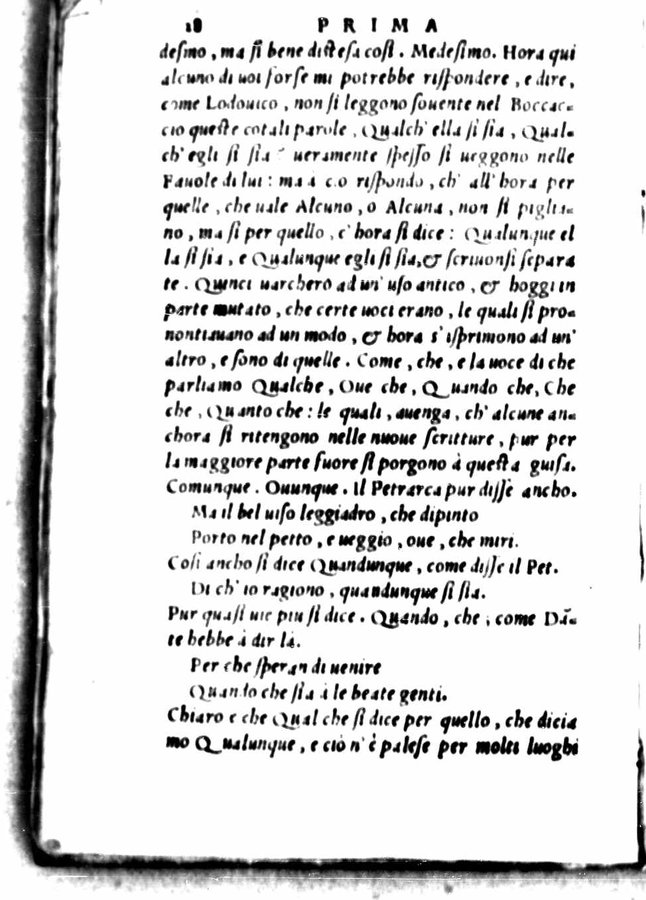 18 PRIMA
desmo, ma sì bene distesa così. Medesimo. Hora qui
alcuno di uoi forse mi potrebbe rispondere, e dire,
come Lodouico, non si leggono souente nel Boccac-
cio queste cotali parole, Qualch' ella si sia, Qual-
ch' egli si sia? ueramente spesso si ueggono nelle
Fauole di lui: ma à ciò rispondo, ch' all' hora per
quelle, che uale Alcuno, o Alcuna, non si piglia-
no, ma sì per quello, c' hora si dice: Qualunque el
la si sia, e Qualunque egli si sia, & scriuonsi separa
te. Quinci uarcherò ad un' uso antico, & hoggi in
parte mutato, che certe uoci erano, le quali si pro-
nontiauano ad un modo, & hora s' isprimono ad un'
altro, e sono di quelle. Come, che, e la uoce di che
parliamo Qualche, Oue che, Quando che, Che
che, Quanto che: le quali, auenga, ch' alcune an-
chora si ritengono nelle nuoue scritture, pur per
la maggiore parte fuore si porgono à questa guisa.
Comunque. Ouunque. Il Petrarca pur disse ancho.
Ma il bel uiso leggiadro, che dipinto
Porto nel petto, e ueggio, oue, che miri.
Così ancho si dice Quandunque, come disse il Pet.
Di ch' io ragiono, quandunque si sia.
Pur quasi uie piu si dice. Quando, che; come Dã-
te hebbe à dir là.
Per che speran di uenire
Quando che sia à le beate genti.
Chiaro e che Qual che si dice per quello, che dicia
mo Qualunque, e ciò n' è palese per molti luoghi